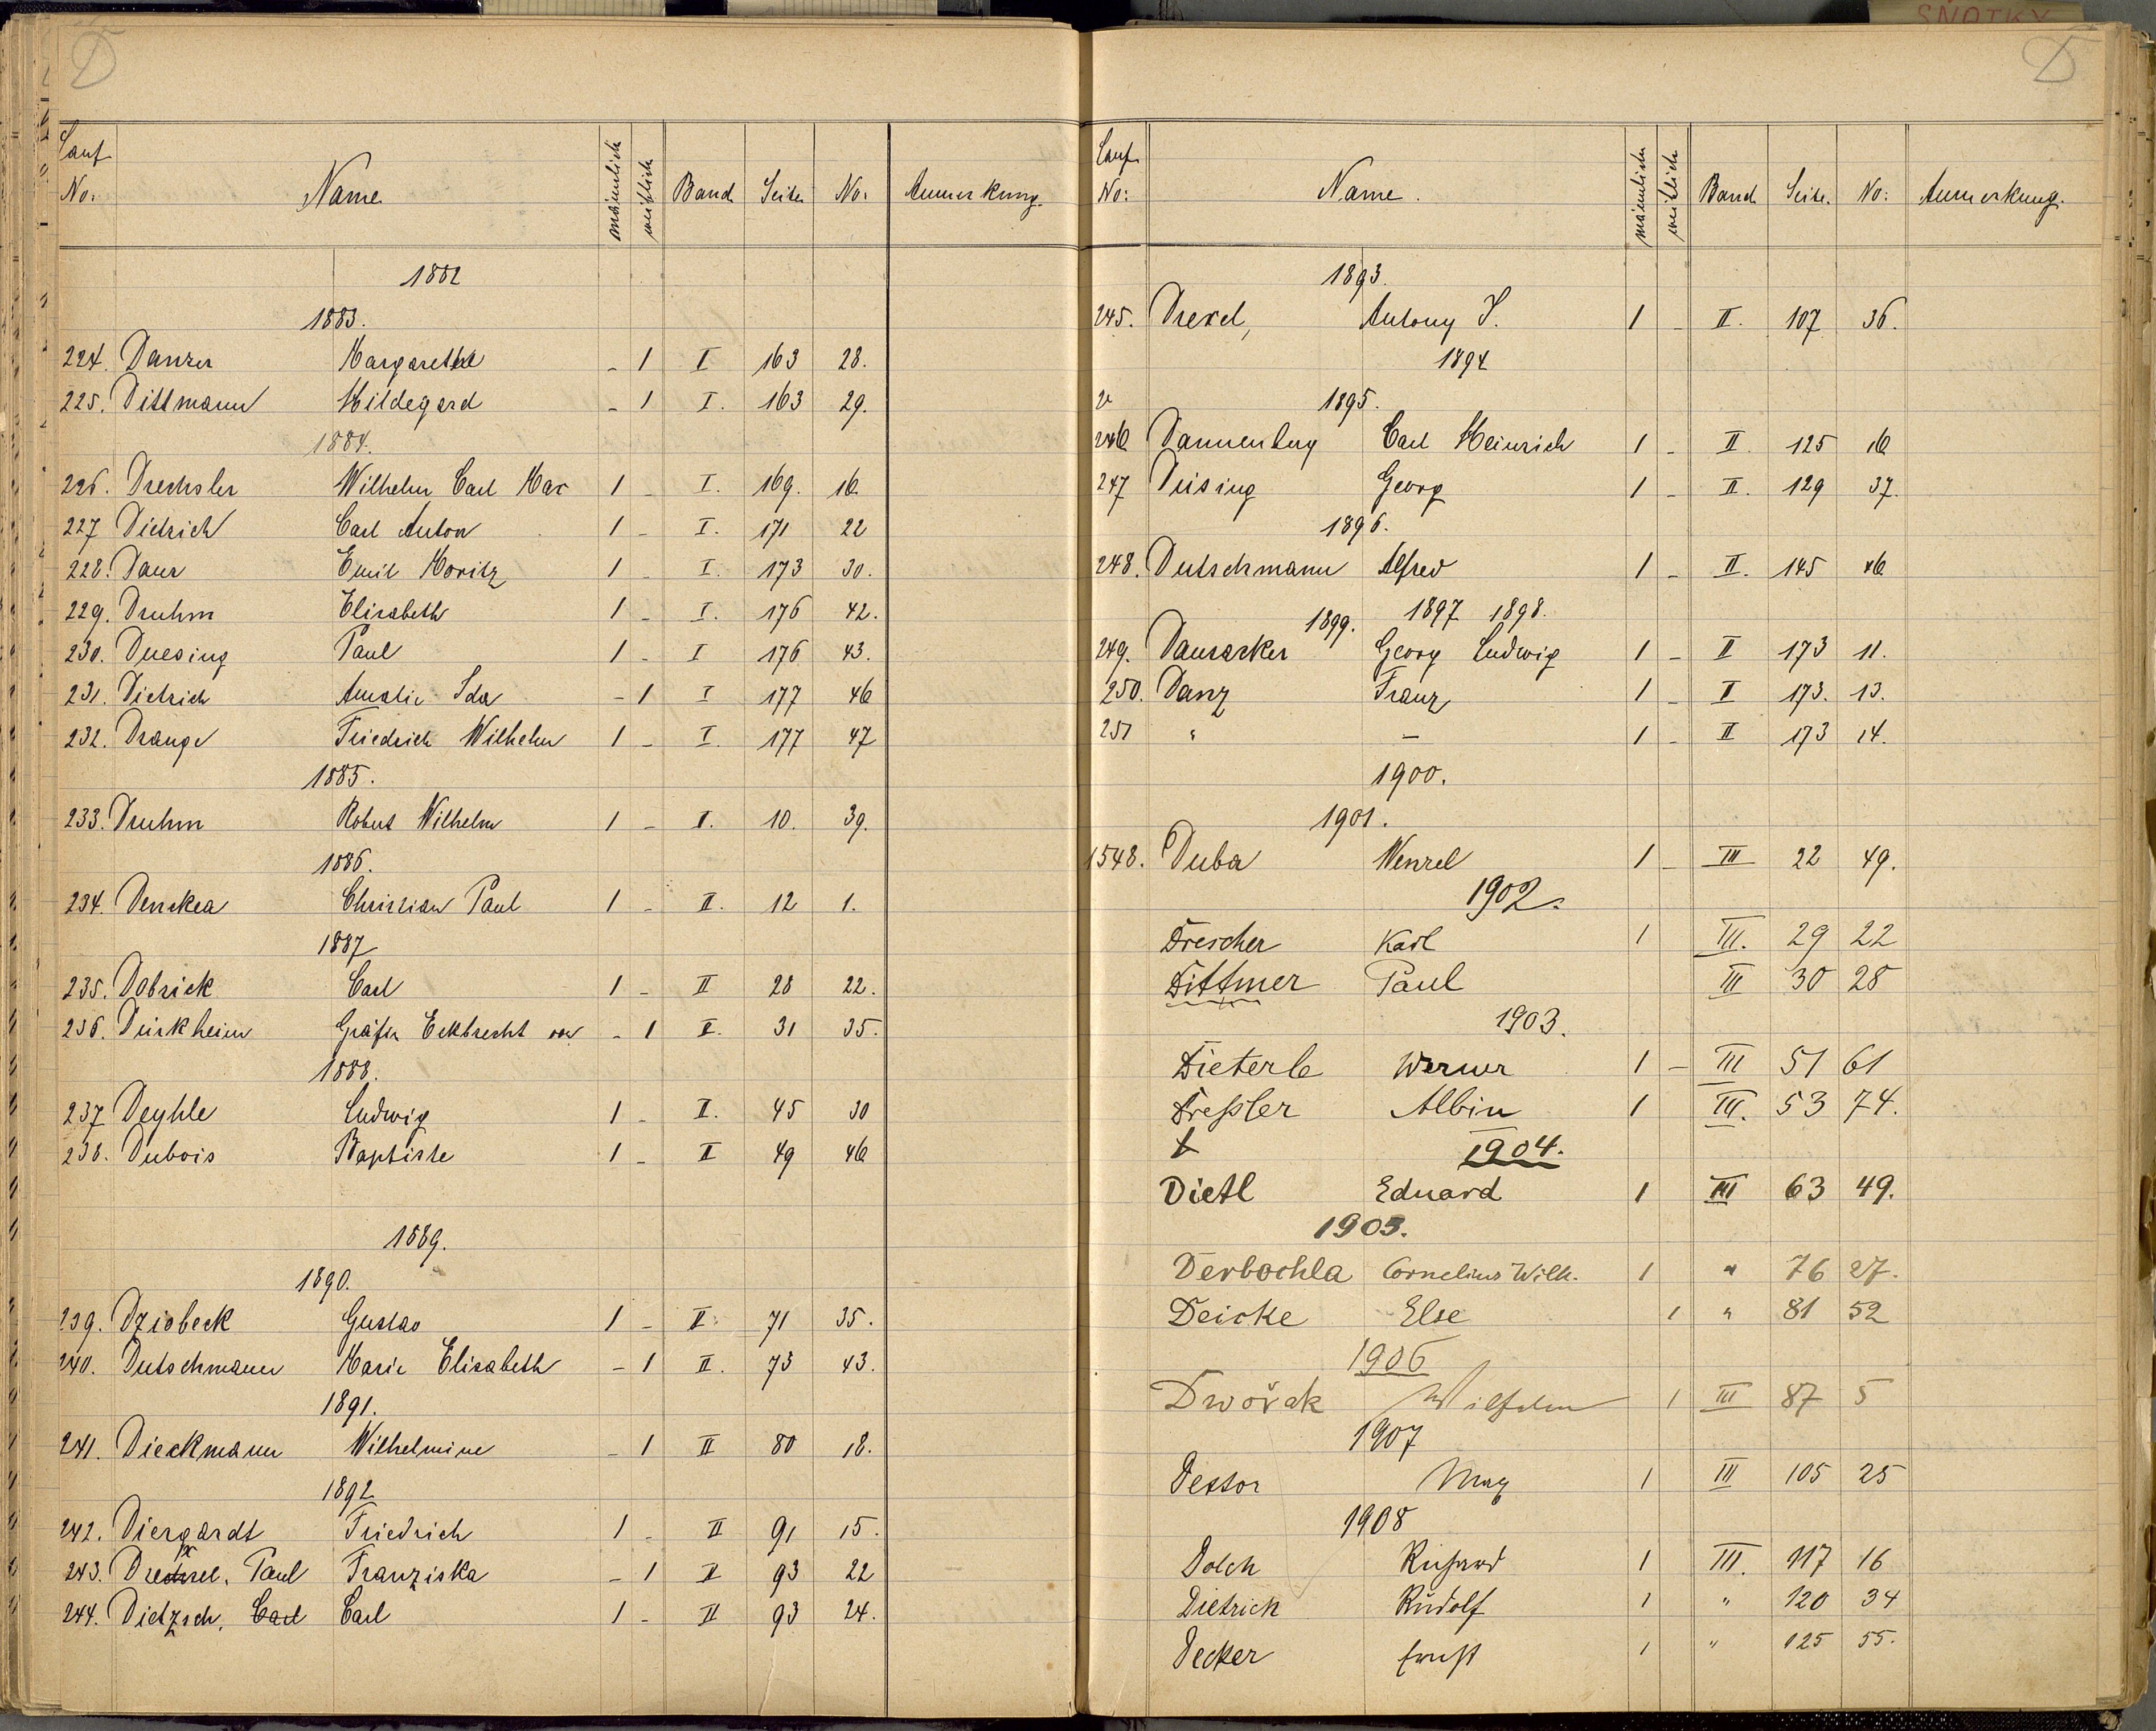 D
Lauf. No: Name männlich weiblich Band Seite No: Anmerkung.
1882
1883.
224. Danzer Margarethe - 1 I 163 28.
225. Dittmann Hildegard - 1 I. 163 29.
1884.
226. Drechsler Wilhelm Carl Max 1 - I. 169. 16.
227 Dietrich Carl Anton 1 - I. 171 22
228. Daur Emil Moritz 1 - I. 173 30.
229. Druhm Elisabeth 1 - I. 176 42.
230. Duesing Paul 1 - I 176 43.
231. Dietrich Amalie Ida - 1 I 177 46
232. Drange Friedrich Wilhelm 1 - I. 177 47
1885.
233. Druhm Robert Wilhelm 1 - I. 10. 39.
1886.
234. Denckea Christian Paul 1 - II. 12 1.
1887
235. Dobrick Carl 1 - II 28 22.
236. Dürkheim Gräfin Eckbrecht von - 1 II. 31 35.
1888.
237 Deyhle Ludwig 1 - II. 45 30
238. Dubois Baptiste 1 - II 49 46
1889.
1890.
239. Dziobeck Gustav 1 - II. 71 35.
240. Dutschmann Marie Elisabeth - 1 II. 73 43.
1891.
241. Dieckmann Wilhelmine - 1 II 80 18.
1892
242. Diergardt Friedrich 1 - II 91 15.
243. Drexel, Paul Franziska - 1 II 93 22
244. Dietzsch, Carl Carl 1 - II 93 24.
D
Lauf. No: Name. männlich weiblich Band Seite. No: Anmerkung.
1893.
245. Drexel, Antony J. 1 - II. 107 36.
1894
1895.
246 Dannenberg Carl Heinrich 1 - II. 125 16
247 Deising Georg 1 - II. 129 37.
1896.
248. Dutschmann Alfred 1 - II. 145 46
1897 1898.
1899.
249. Dausacker Georg Ludwig 1 - II 173 11.
250. Danz Franz 1 - II 173. 13.
251 " - 1 - II 173 14.
1900.
1901.
1548. Duba Wenzel 1 - III 22 49.
1902.
Drescher Karl 1 III. 29 22
Dittmer Paul III 30 28
1903.
Dieterle Werner 1 - III 51 61
Dreßler Albin 1 III. 53 74.
1904.
Dietl Eduard 1 III 63 49.
1905.
Derbochla Cornelius Wilh. 1 " 76 27.
Deicke Else 1 " 81 52
1906
Dwořak Wilhelm 1 III 87 5
1907
Dextor Max 1 III 105 25
1908
Dolch Richard 1 III. 117 16
Dietrich Rudolf 1 " 120 34
Decker Ernst 1 " 125 55.